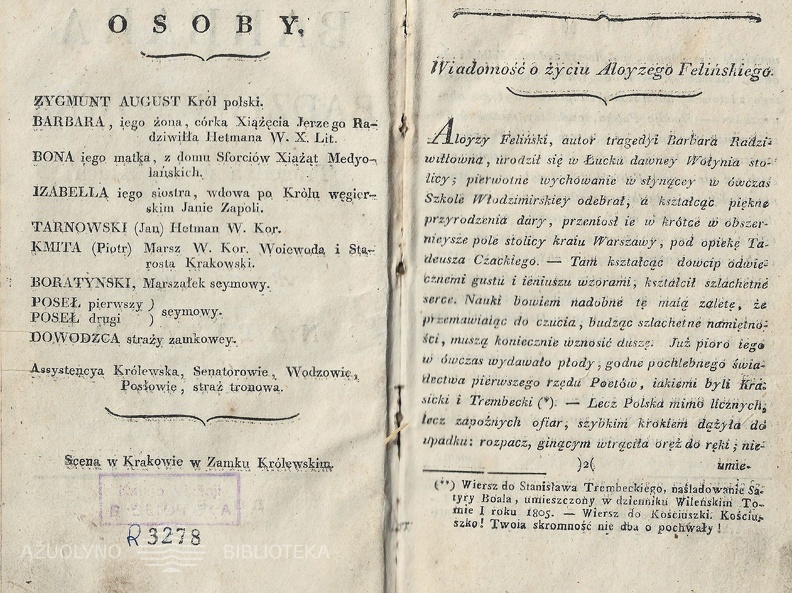 OSOBY.
ZYGMUNT AUGUST Król polski.
BARBARA, iego żona, córka Xiążęcia Jerzego Ra-
dziwiłła Hetmana W. X. Lit.
BONA iego matka, z domu Sforciów Xiążąt Medyo-
lańskich.
IZABELLA iego siostra, wdowa po Królu węgier-
skim Janie Zapoli.
TARNOWSKI (Jan) Hetman W. Kor.
KMITA (Piotr) Marsz W. Kor. Woiewoda i Sta-
rosta Krakowski.
BORATYNSKI, Marszałek seymowy.
POSEŁ pierwszy )
POSEŁ drugi ) seymowy.
DOWODZCA straży zamkowey.
Assystencya Królewska, Senatorowie, Wodzowie,
Posłowie, straż tronowa.
Scena w Krakowie w Zamku Królewskim.
R 3278
AŽUOLYNO BIBLIOTEKA
Wiadomość o życiu Aloyzego Felińskiego.
Aloyzy Feliński, autor tragedyi Barbara Radzi-
wiłłowna, urodził się w Łucku dawney Wołynia sto-
licy; pierwotne wychowanie w słynącey w ówczas
Szkole Włodzimirskiey odebrał, a kształcąc piękne
przyrodzenia dary, przeniosł ie w krótce w obszer-
nieysze pole stolicy kraiu Warszawy, pod opiekę Ta-
deusza Czackiego. — Tam kształcąc dowcip odwie-
cznemi gustu i ieniuszu wzorami, kształcił szlachetné
serce. Nauki bowiem nadobne tę maią zaletę, że
przemawiaiąc do czucia, budząc szlachetne namiętno-
ści, muszą koniecznie wznosić duszę. Już pioro iego
w ówczas wydawało płody, godne pochlebnego świa-
dectwa pierwszego rzędu Poetów, iakiemi byli Kra-
sicki i Trembecki (*). — Lecz Polska mimo licznych,
lecz zapoźnych ofiar, szybkim krokiem dążyła do
upadku: rozpacz, ginącym wtrąciła oręż do ręki; nie-
)2( umie-
(**) Wiersz do Stanisława Trembeckiego, naśladowanie Sa-
tyry Boala, umieszczony w dzienniku Wileńskim To-
mie I roku 1805. — Wiersz do Kościuszki. Kościu-
szko! Twoia skromność nie dba o pochwały!